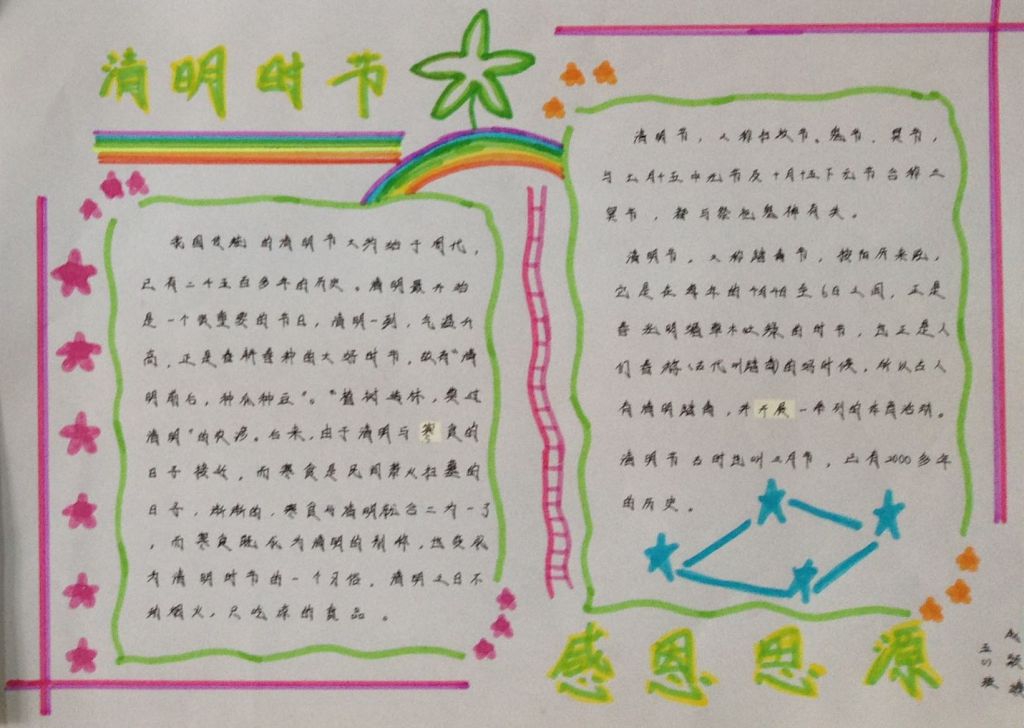 清明时节
我国传统的清明节大约始于周代，
已有二千五百多年的历史。清明最开始
是一个很重要的节日，清明一到，气温升
高，正是春耕春种的大好时节，故有“清
明前后，种瓜种豆”。“植树造林，莫过
清明”的农谚。后来，由于清明与寒食的
日子接近，而寒食是民间禁火扫墓的
日子，渐渐的，寒食与清明就合二为一了
，而寒食既成为清明的别称，也变成
为清明时节的一个习俗，清明之日不
动烟火，只吃凉的食品。
清明节，又称扫坟节、鬼节、冥节，
与七月十五中元节及十月十五下元节合称三
冥节，都与祭祀鬼神有关。
清明节，又称踏青节，按阳历来说，
它是在每年的4月4日至6日之间，正是
春光明媚草木吐绿的时节，也正是人
们春游（古代叫踏青）的好时候，所以古人
有清明踏青，并开展一系列的体育活动。
清明节古时也叫三月节，已有2000多年
的历史。
感恩思源
五（1）班